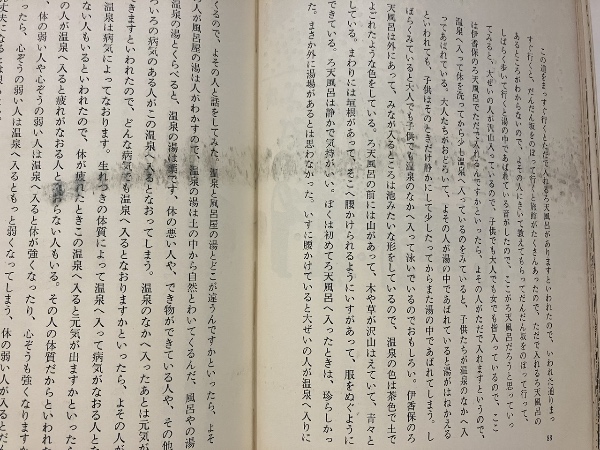 この道をまっすぐ行くとただで入れるろ天風呂がありますといわれたので、いわれた通りまっ
すぐ行くと、だんだん坂をのぼって行くと旅館がたくさんあったので、ただで入れるろ天風呂の
あるところがわからないので、よその人にきいて教えてもらってだんだん坂をのぼって行って、
しばらく歩いて行くと湯の中であばれている音がしたので、ここがろ天風呂だろうと思っていっ
てみると、大ぜいの人が沢山入っているので、子供でも大人でも女でも皆入っているので、ここ
は伊香保のろ天風呂でただで入れるんですかといったら、よその人がただで入れますというので、
温泉へ入って体を洗ってから少し温泉へ入っているのをみていると、子供たちが温泉のなかへ入
ってあばれている。大人たちがおどろいて、よその人が湯の中であばれていると湯がはねかえる
といわれても、子供はそのときだけ静かにして少したってからまた湯の中であばれてしまう。し
ばらくみていると大人でも子供でも温泉のなかへ入って泳いでいるのでおもしろい。伊香保のろ
天風呂は外にあって、みんが入るところは池みたいな形をしているので、温泉の色は茶色で土で
よごれたような色をしている。ろ天風呂の前には山があって、木や草が沢山はえていて、青々と
している。まわりには垣根があって、そこへ腰かけられるようにいすがあって、服をぬぐように
できている。ろ天風呂は静かで気持がいい。ぼくは初めてろ天風呂へ入ったときは、珍らしかっ
た。まさか外に湯場があるとは思わなかった。いすに腰かけていると大ぜいの人が温泉へ入りに
68
くるので、よその人と話をしてみた。温泉と風呂屋の湯とどこが違うんですかといったら、よそ
の人が風呂屋の湯は人がわかすので、温泉の湯は土の中から自然とわいてくるんだ、風呂やの湯
温泉の湯とくらべると、温泉の湯は薬です、体の悪い人や、でき物ができている人や、その他
ろいろの病気のある人がこの温泉へ入るとなおってしまう。温泉のなかへ入ったあとは元気が
きますといわれたので、どんな病気でも温泉へ入るとなおりますかといったら、よその人が
温泉は病気によってなおります。生れつきの体質によって温泉へ入って病気がなおる人とな
ない人もいるといわれたので、体が疲れたときこの温泉へ入ると元気が出ますかといったら
人が温泉へ入ると疲れがなおる人となおらない人もいる。その人の体質だからといわれた
、体の弱い人や心ぞうの弱い人は温泉へ入ると体が強くなったり、心ぞうも強くなりますか
ったら、心ぞうの弱い人は温泉へ入るともっと弱くなってしまう、体の弱い人が入るとだん